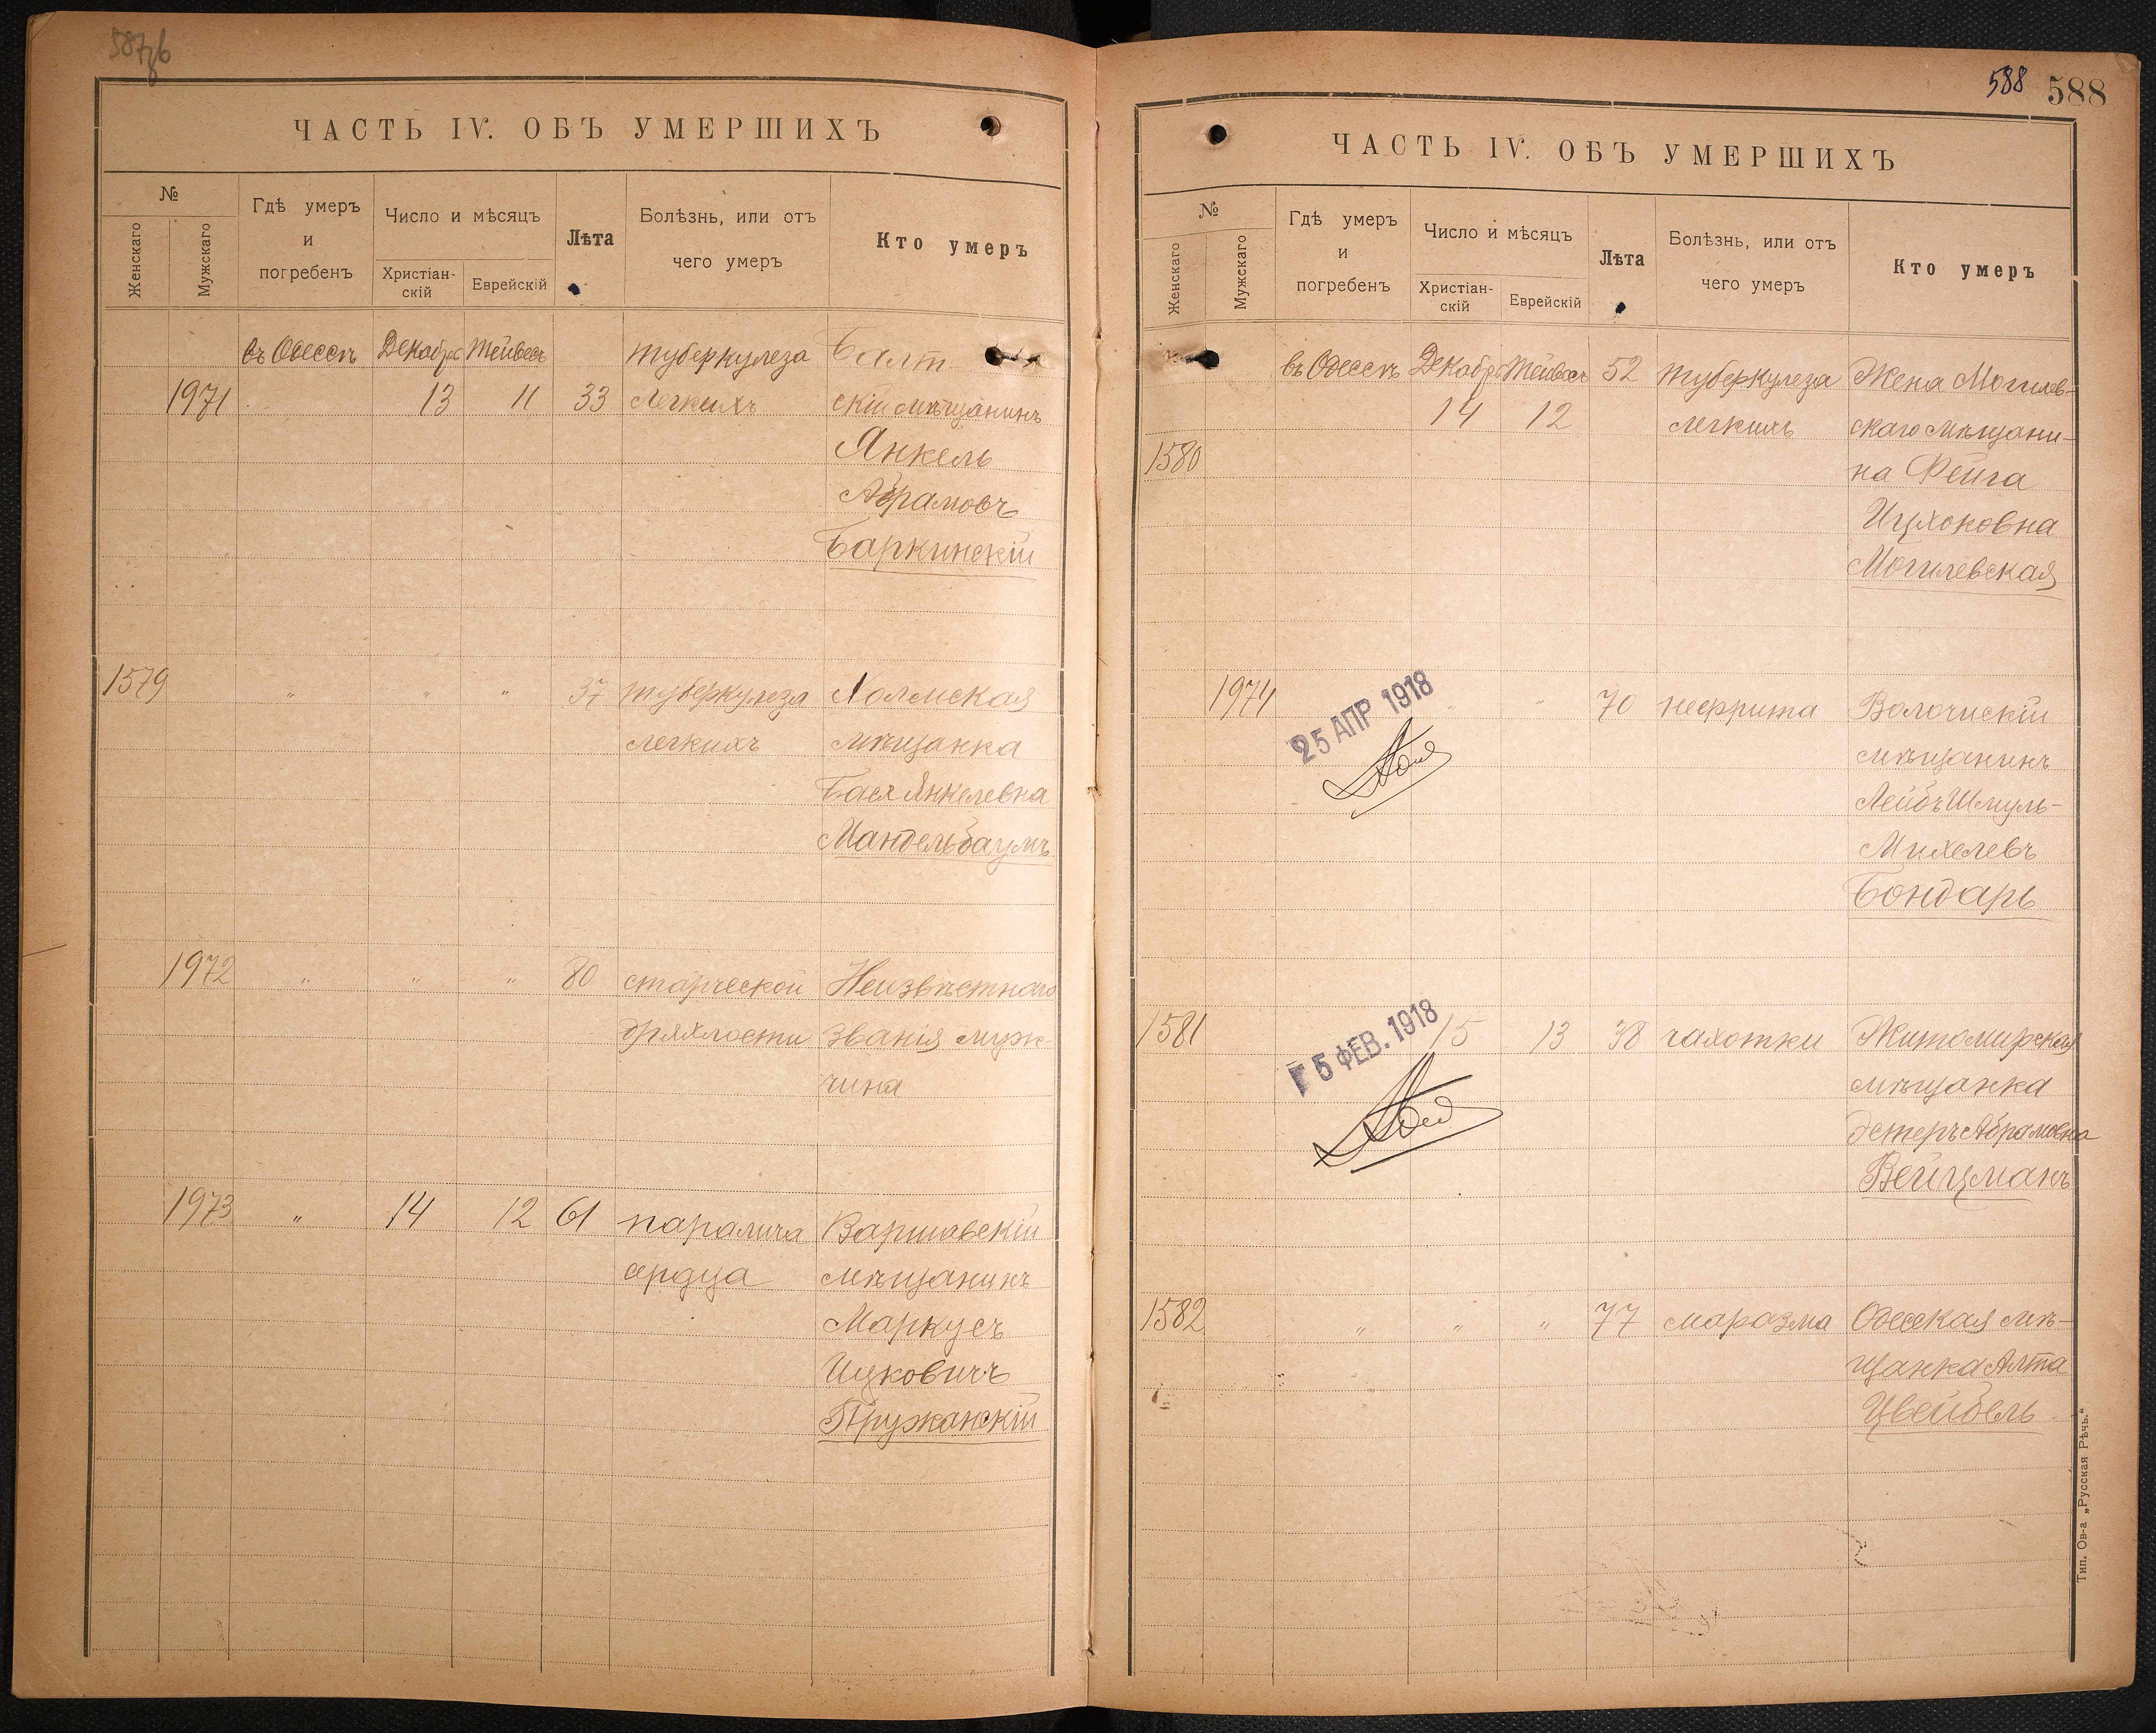 587об
ЧАСТЬ IV. ОБЪ УМЕРШИХЪ
№
Женскаго
Мужскаго
Гдѣ умеръ
и
погребенъ
Число и мѣсяцъ
Христіан-
скій
Еврейскій
Лѣта
Болѣзнь, или отъ
чего умеръ
Кто умеръ
въ Одессѣ Декабрь Тейвесъ туберкулеза Балт
1971 13 11 33 легкихъ скій мѣщанинъ
Янкель
Абрамовъ
Баркинскій
1579 " " " 37 туберкулеза Холмская
легкихъ мѣщанка
Бася Янкелевна
Мандельбаумъ
1972 " " " 80 старческой Неизвѣстнаго
дряхлости званія муж-
чина
1973 " 14 12 61 паралича Варшавскій
сердца мѣщанинъ
Маркусъ
Ицковичъ
Пружанскій
588 588
ЧАСТЬ IV. ОБЪ УМЕРШИХЪ
№
Женскаго
Мужскаго
Гдѣ умеръ
и
погребенъ
Число и мѣсяцъ
Христіан-
скій
Еврейскій
Лѣта
Болѣзнь, или отъ
чего умеръ
Кто умеръ
въ Одессѣ Декабрь Тейвесъ 52 туберкулеза Жена Могилев-
14 12 легкихъ скаго мѣщани-
1580 на Фейга
Ицхоковна
Могилевская
1974 " " 70 нефрита Волочискій
25 АПР 1918
мѣщанинъ
Лейбъ Шмуль-
Михелевъ
Бондарь
1581 15 13 38 чахотки Житомирская
15 ФЕВ. 1918
мѣщанка
Эстеръ Абрамовна
Вейцманъ
1582 " " " 77 маразма Одесская мѣ-
щанка Алта
Цвейбель
Тип. Ов-а „Русская Рѣчь."